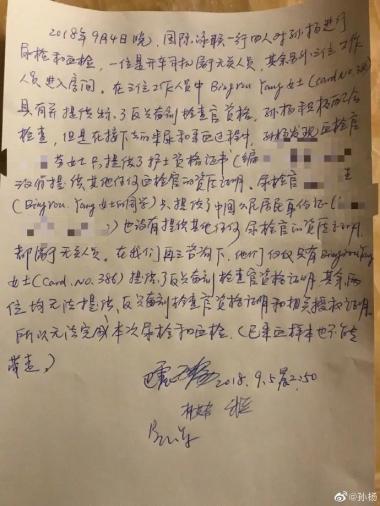 2018年9月4日晚，国际泳联一行四人对孙杨进行
尿检和血检，一位是开车司机属于无关人员，其余另外三位工作
人员进入房间。在三位工作人员中 Bingrou Yang 女士(card NO.386)
具有并提供了反兴奋剂检查官资格，孙杨积极配合
检查，但是在接下去的采尿和采血过程中，孙杨发现血检官
女士只提供了护士资格证书(编
没有提供其他任何血检官的资历证明。尿检官
(Bingrou Yang女士的同学)只提供了中国公民居民身份证(
)也没有提供其他任何尿检官的资历证明
都属于无关人员。在我们再三咨询下，他们仅仅只有Bingrou Yang
女士(Card.No.386)提供了反兴奋剂检查官资格证明，其余两
位均无法提供反兴奋剂检查官资格证明和相关授权证明，
所以无法完成本次尿检和血检。(已采血样本也不能
带走。)
2018.9.5晨2:50
@孙杨